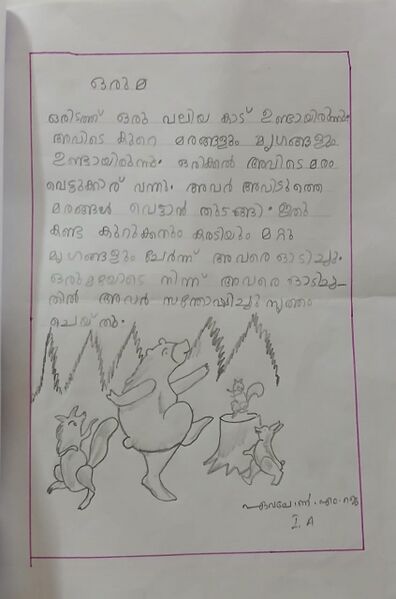 ഒരുമ
ഒരിടത്ത് ഒരു വലിയ കാട് ഉണ്ടായിരുന്നു.
അവിടെ കുറെ മരങ്ങളും മൃഗങ്ങളും
ഉണ്ടായിരുന്നു. ഒരിക്കൽ അവിടെ മരം
വെട്ടുക്കാര് വന്നു. അവർ അവിടുത്തെ
മരങ്ങൾ വെട്ടാൻ തുടങ്ങി. ഇതു
കണ്ട കുറുക്കനും കരടിയും മറ്റു
മൃഗങ്ങളും ചേർന്ന് അവരെ ഓടിച്ചു.
ഒരുമയോടെ നിന്ന് അവരെ ഓടിച്ച-
തിൽ അവർ സന്തോഷിച്ചു നൃത്തം
ചെയ്തു.
I A